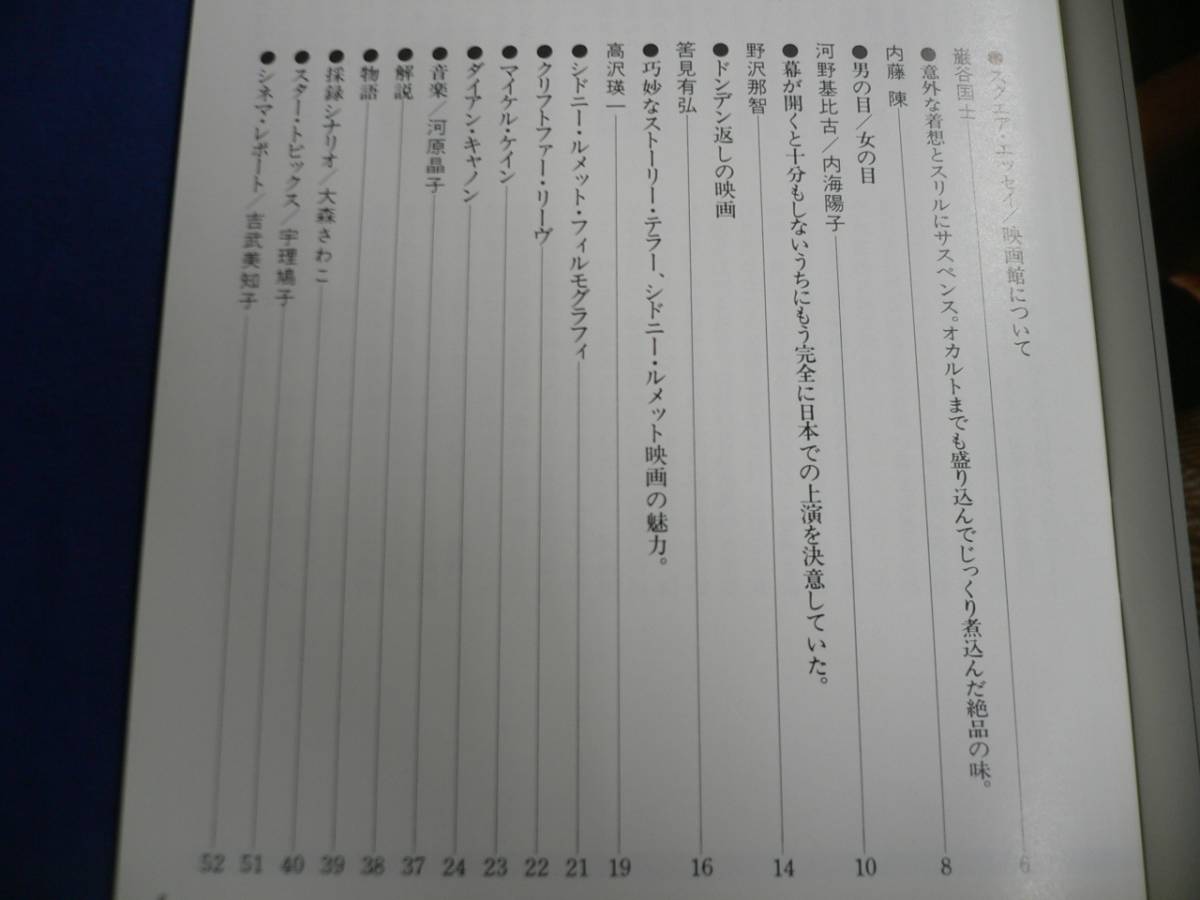 ●スクエア・エッセイ／映画館について
巌谷国士 6
●意外な着想とスリルにサスペンス。オカルトまでも盛り込んでじっくり煮込んだ絶品の味。
内藤 陳 8
●男の目／女の目
河野基比古／内海陽子 10
●幕が開くと十分もしないうちにもう完全に日本での上演を決意していた。
野沢那智 14
●ドンデン返しの映画
筈見有弘 16
●巧妙なストーリー・テラー、シドニー・ルメット映画の魅力。
高沢瑛一 19
●シドニー・ルメット・フィルモグラフィ 21
●クリストファー・リーヴ 22
●マイケル・ケイン 23
●ダイアン・キャノン 24
●音楽／河原晶子 37
●解説 38
●物語 39
●採録シナリオ／大森さわこ 40
●スター・トピックス／宇理鳩子 51
●シネマ・レポート／吉武美知子 52